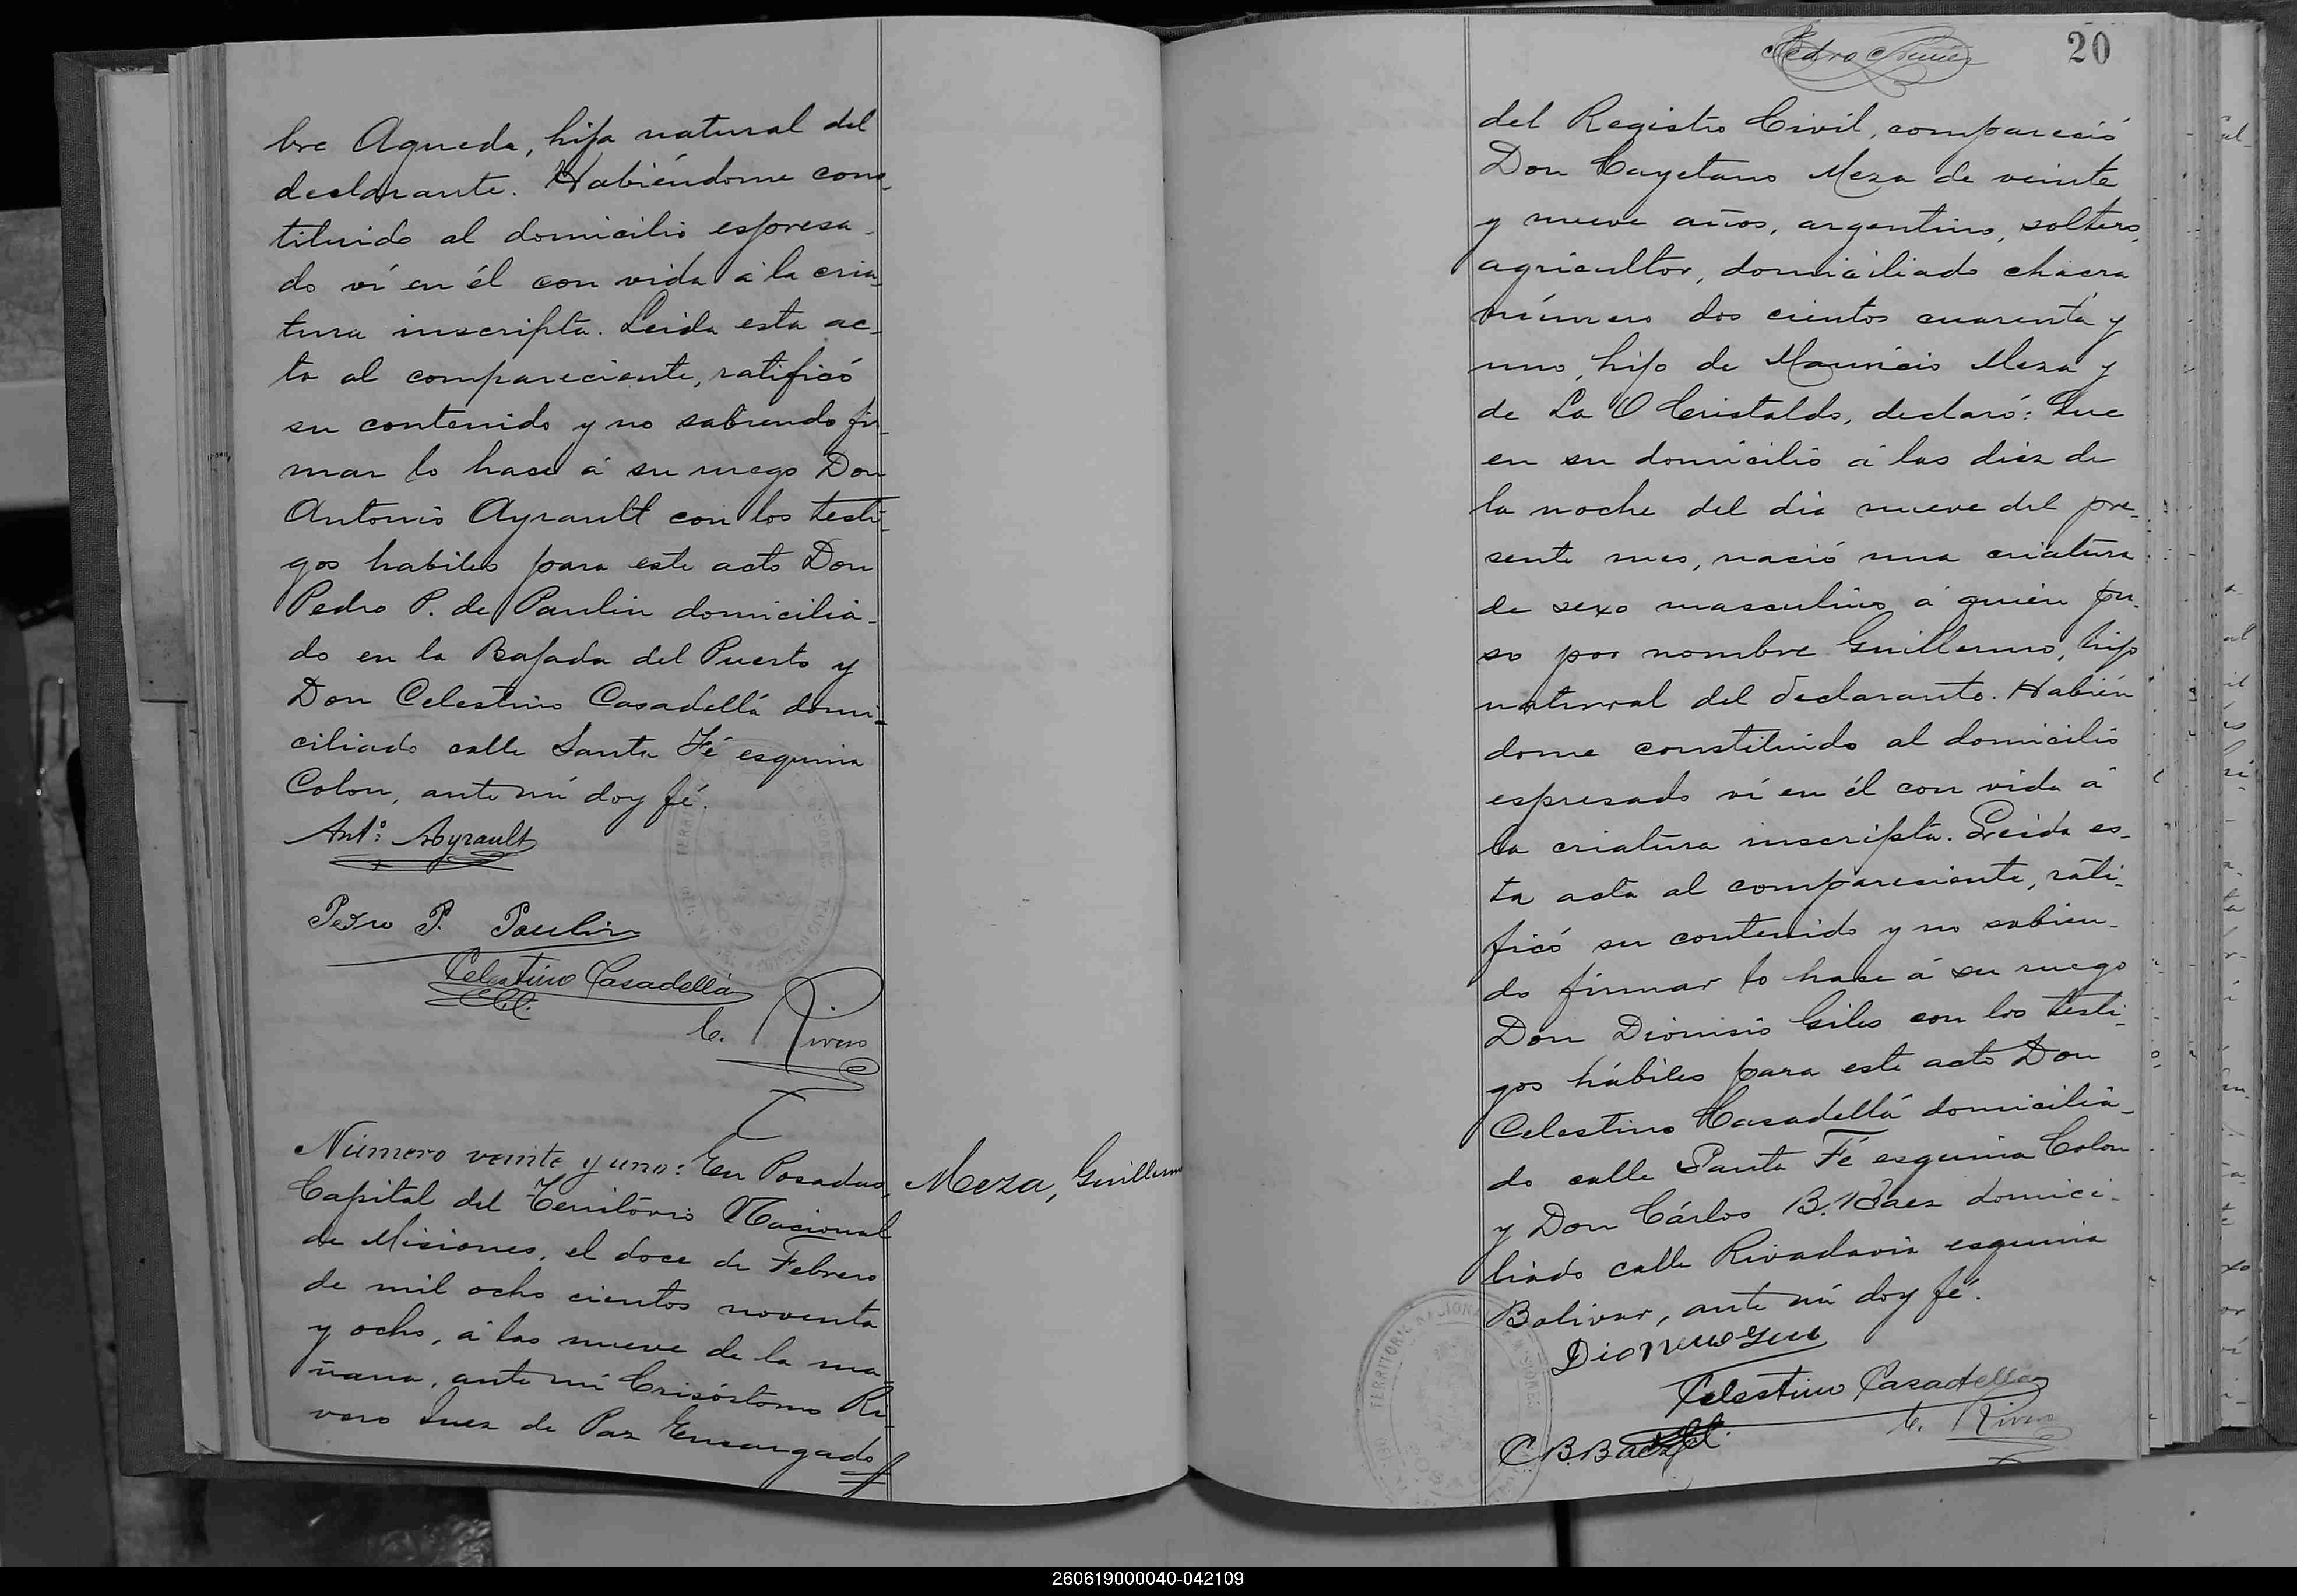 bre Agueda, hija natural del
declarante. Habiéndome cons-
tituido al domicilio espresa-
do ví en él con vida á la cria-
tura inscripta. Leida esta ac-
ta al compareciente, ratificó
su contenido y no sabiendo fir-
mar lo hace á su ruego Don
Antonio Ayrault con los testi-
gos habiles para este acto Don
Pedro P. de Paulin domicilia-
do en la Bajada del Puerto y
Don Celestino Casadellá domi-
ciliado calle Santa Fé esquina
Colon, ante mí doy fé.
Ant.º Ayrault
Pedro P. Paulin
Celestino Casadellá
C. Rivero
Número veinte y uno: En Posadas,
Capital del Territorio Nacional
de Misiones, el doce de Febrero
de mil ocho cientos noventa
y ocho, á las nueve de la ma-
ñana, ante mí Crisóstomo Ri-
vero Juez de Paz Encargado
Meza, Guillermo
Pedro Nuñez
20
del Registro Civil, comparesió
Don Cayetano Meza de veinte
y nueve años, argentino, soltero,
agricultor, domiciliado chacra
número dos cientos cuarenta y
uno, hijo de Mauricio Meza y
de La O Cristaldo, declaró: Que
en su domicilio á las diez de
la noche del dia nueve del pre-
sente mes, nació una criatura
de sexo masculino á quien pu-
so por nombre Guillermo, hijo
natural del declarante. Habién
dome constituido al domicilio
espresado ví en él con vida á
la criatura inscripta. Leida es-
ta acta al comparesiente, rati-
ficó su contenido y no sabien-
do firmar lo hace á su ruego
Don Dionisio Giles con los testi-
gos hábiles para este acto Don
Celestino Casadellá domicilia-
do calle Santa Fé esquina Colon
y Don Cárlos B. Baez domici-
liado calle Rivadavia esquina
Bolivar, ante mí doy fé.
Celestino Casadellá
C. Rivero
C B. Baez
260619000040-042109